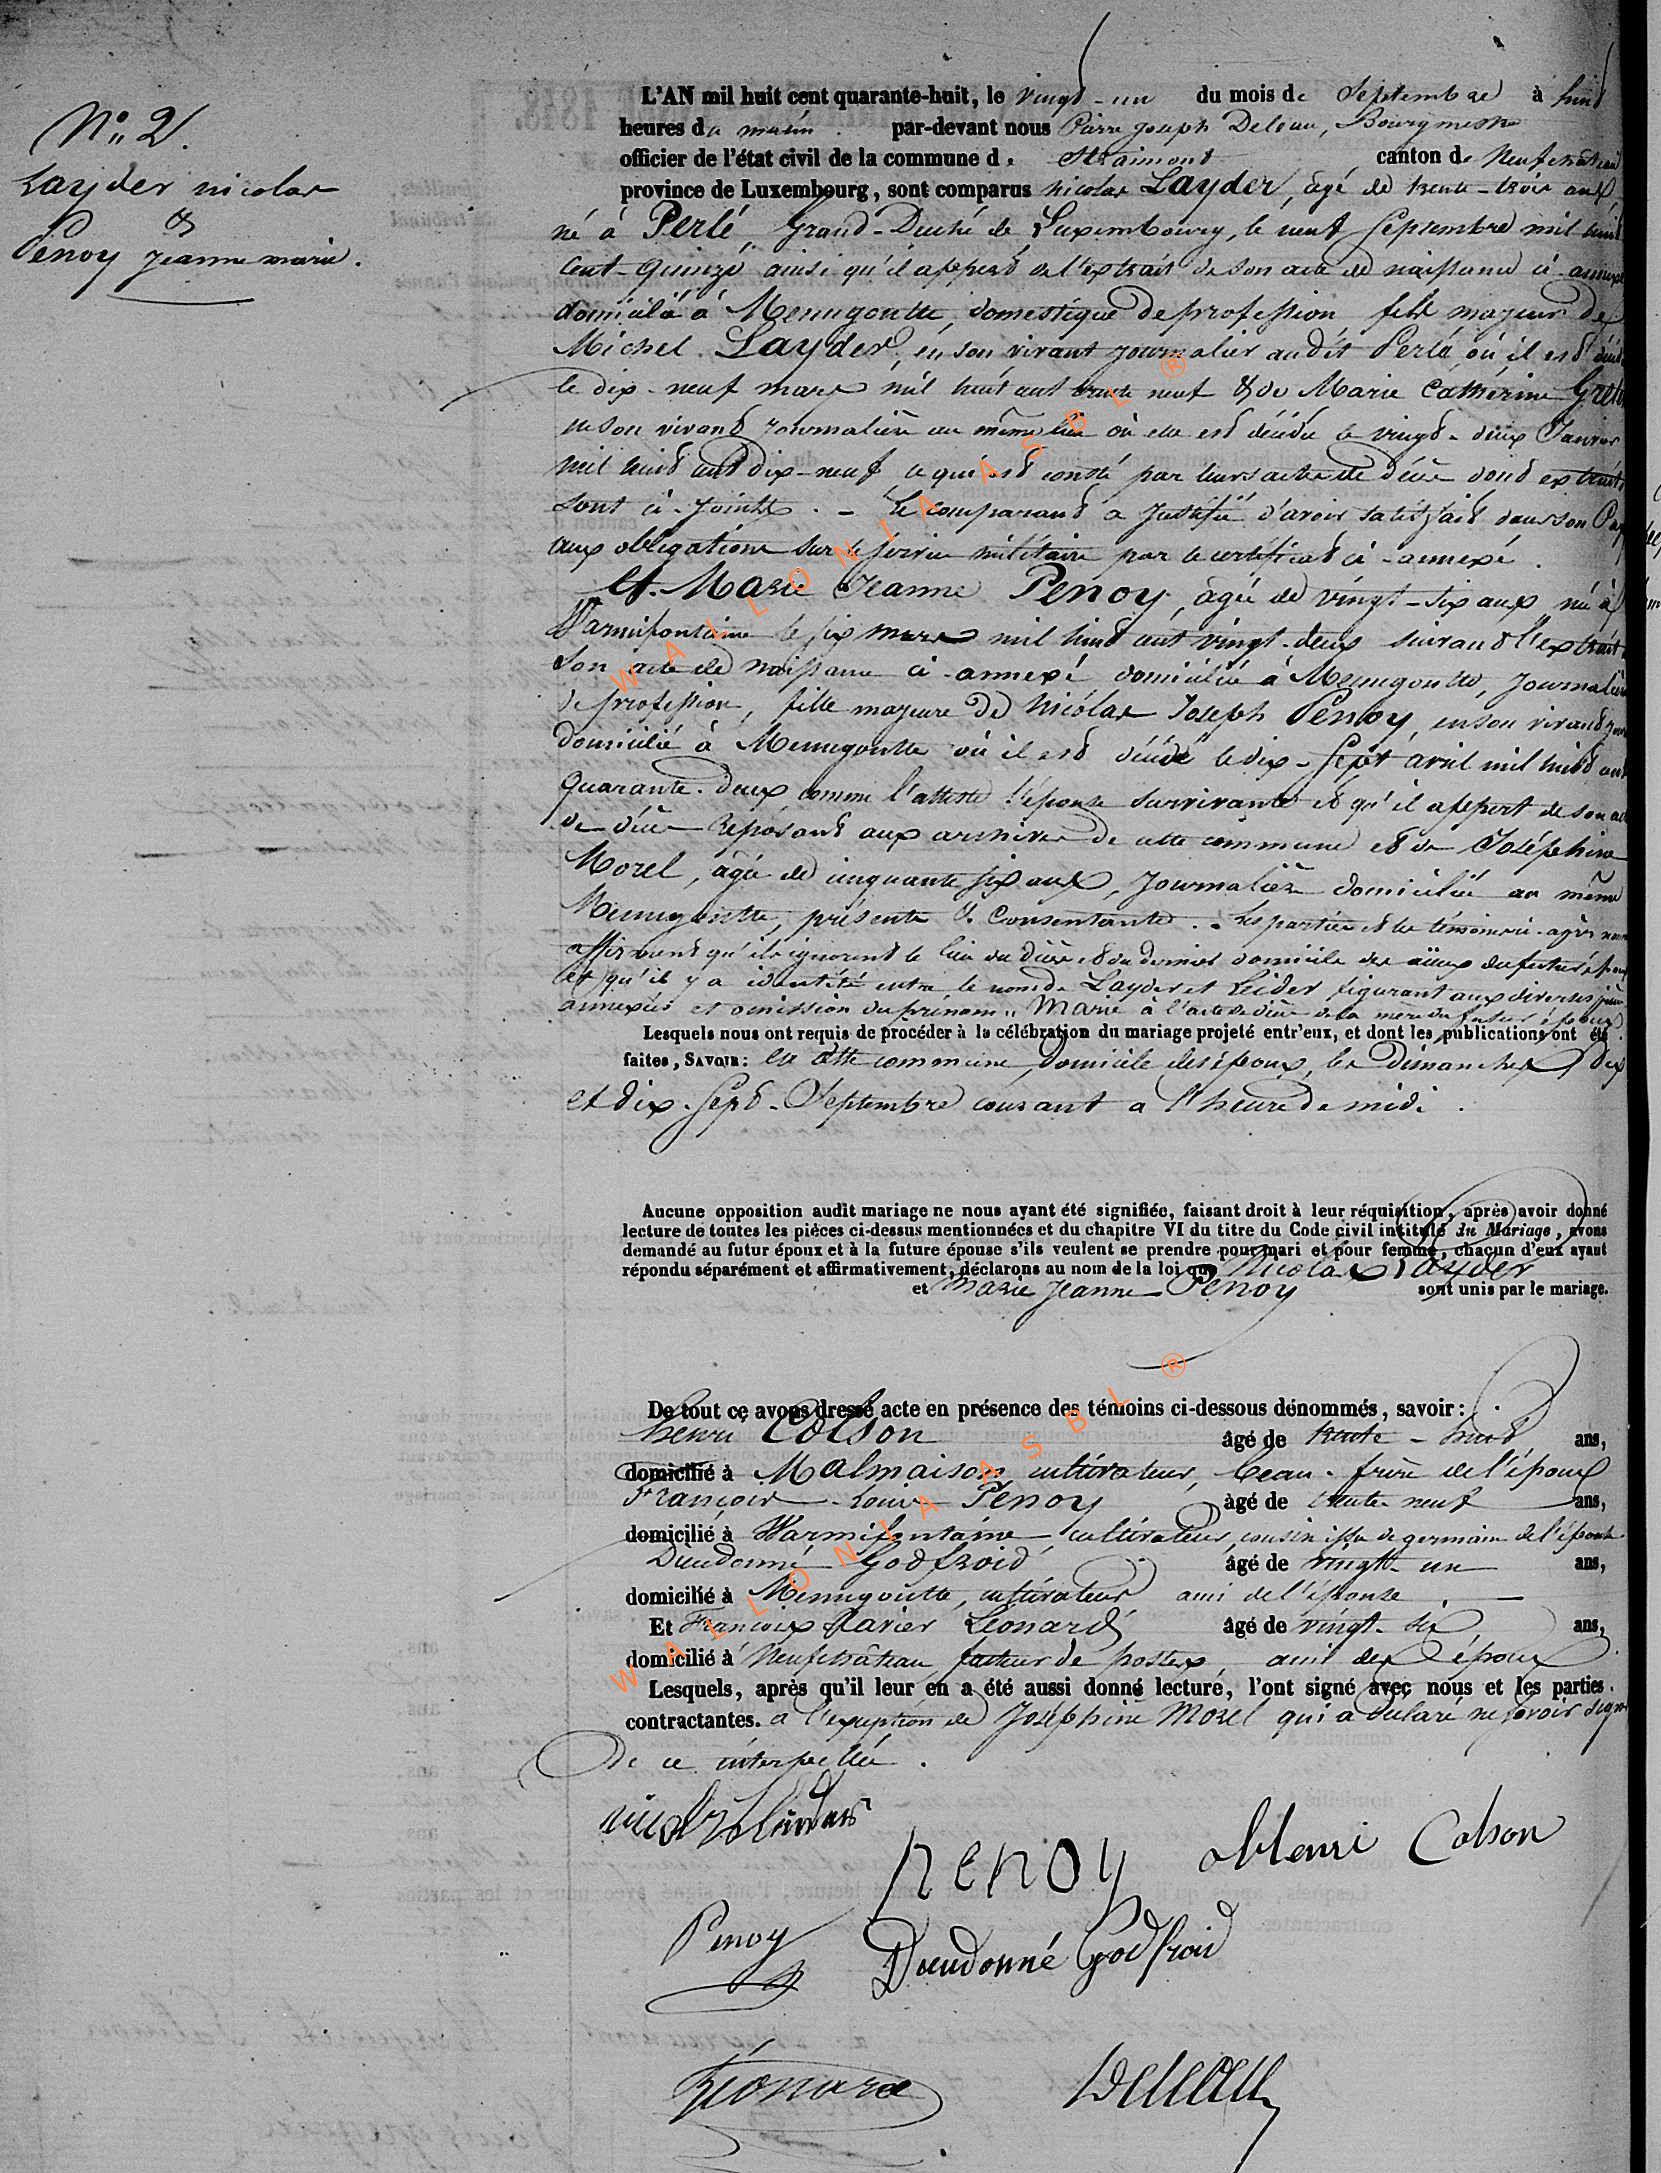 N° 2.
Layder nicolas
&
Penoy Jeanne marie.
L'AN mil huit cent quarante-huit, le vingt-un du mois de Septembre à huit
heures du matin par-devant nous Pierre Joseph Deleau, Bourgmestre
officier de l'état civil de la commune de Straimont canton de Neufchâteau
province de Luxembourg, sont comparus Nicolas Layder, âgé de trente-trois ans,
né à Perlé, Grand-Duché de Luxembourg, le neuf Septembre mil huit
Cent-quinze ainsi qu'il appert de l'extrait de son acte de naissance ci-annexé
domicilié à Menugoutte, domestique de profession fils majeur de
Michel Layder, en son vivant journalier audit Perlé, où il est décédé
le dix-neuf mars mil huit cent trente neuf & de Marie Catherine
en son vivant journalière au même lieu où elle est décédée le vingt-deux Janvier
mil huit cent dix-neuf, ce qui est consté par leurs actes de décès dont extraits
sont ci-joints. - Le comparant a justifié d'avoir satisfait dans son Pays
aux obligations sur le service militaire par le certificat ci-annexé.
Et Marie Jeanne Penoy, âgée de vingt-six ans, née à
Warmifontaine le six mars mil huit cent vingt-deux suivant l'extrait
Son acte de naissance ci-annexé domiciliée à Menugoutte, Journalière
de profession, fille majeure de Nicolas Joseph Penoy, en son vivant
domicilié à Menugoutte où il est décédé le dix-sept avril mil huit cent
quarante-deux, comme l'atteste l'épouse survivante et qu'il appert de son acte
de décès reposant aux archives de cette commune et de Joséphine
Morel, âgée de cinquante six ans, Journalière domiciliée au même
Menugoutte, présente & Consentante. - Les parties et les témoins ci-après nommés
affirment qu'ils ignorent le lieu du décès et du dernier domicile des aïeux du futur époux
et qu'il y a identité entre le nom de Layder et Leider figurant aux diverses pièces
annexées et omission du prénom "Marie à l'acte de décès de la mère du futur époux
Lesquels nous ont requis de procéder à la célébration du mariage projeté entr'eux, et dont les publications ont été
faites, SAVOIR: en cette commune, domicile des époux, les Dimanches dix
et dix-sept Septembre courant a l'heure de midi.
Aucune opposition audit mariage ne nous ayant été signifiée, faisant droit à leur réquisition, après avoir donné
lecture de toutes les pièces ci-dessus mentionnées et du chapitre VI du titre du Code civil intitulé du Mariage, avons
demandé au futur époux et à la future épouse s'ils veulent se prendre pour mari et pour femme, chacun d'eux ayant
répondu séparément et affirmativement, déclarons au nom de la loi que Nicolas Layder
et Marie Jeanne Penoy sont unis par le mariage.
De tout ce avons dressé acte en présence des témoins ci-dessous dénommés, savoir:
henri Colson âgé de trente-huit ans,
domicilié à Malmaison, cultivateur, beau-frère de l'époux
François-Louis Penoy âgé de trente-neuf ans,
domicilié à Warmifontaine cultivateur, cousin issu de germain de l'épouse
Dieudonné Godfroid âgé de vingt-un ans,
domicilié à Menugoutte, cultivateur ami de l'épouse
Et François Xavier Léonard âgé de vingt-six ans,
domicilié à Neufchâteau, facteur de postes, ami des époux
Lesquels, après qu'il leur en a été aussi donné lecture, l'ont signé avec nous et les parties
contractantes. a l'exception de Joséphine Morel qui a déclaré ne savoir signer
De ce interpellée.
Penoy Henri Colson
Penoy Dieudonné Godfroid
Léonard
WALLONIA ASBL ®
WALLONIA ASBL ®